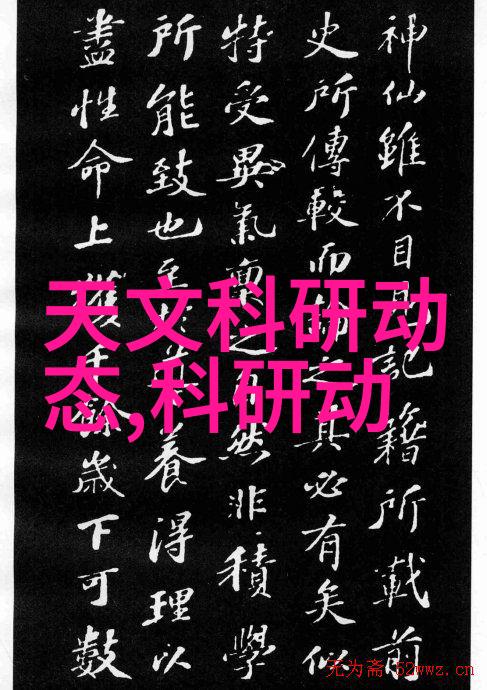 神仙雖不目見記籍所載前
史所傳較而之其必有矣似
特受異氣稟之自然非積學
所能致也至養得理以
盡性命上獲千餘歲下可數
天文科研动
态,科研动
无为斋 52wwz.cn